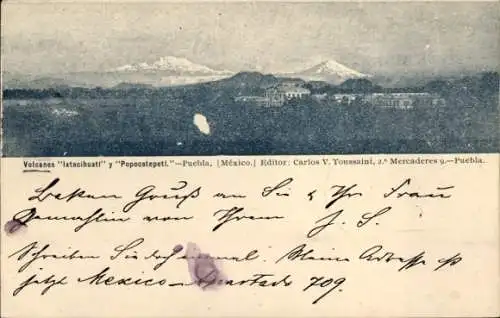 Volcanes "Istacihuatl" y "Popocatepetl."—Puebla, [México.] Editor: Carlos V. Toussaint, 2.ª Mercaderes 9.—Puebla.
Besten Gruß an Sie & Ihr Frau
Gemahlin von Ihrem J. S.
Schreiben Sie doch einmal. Meine Adresse ist
jetzt Mexico – Apartado 709.